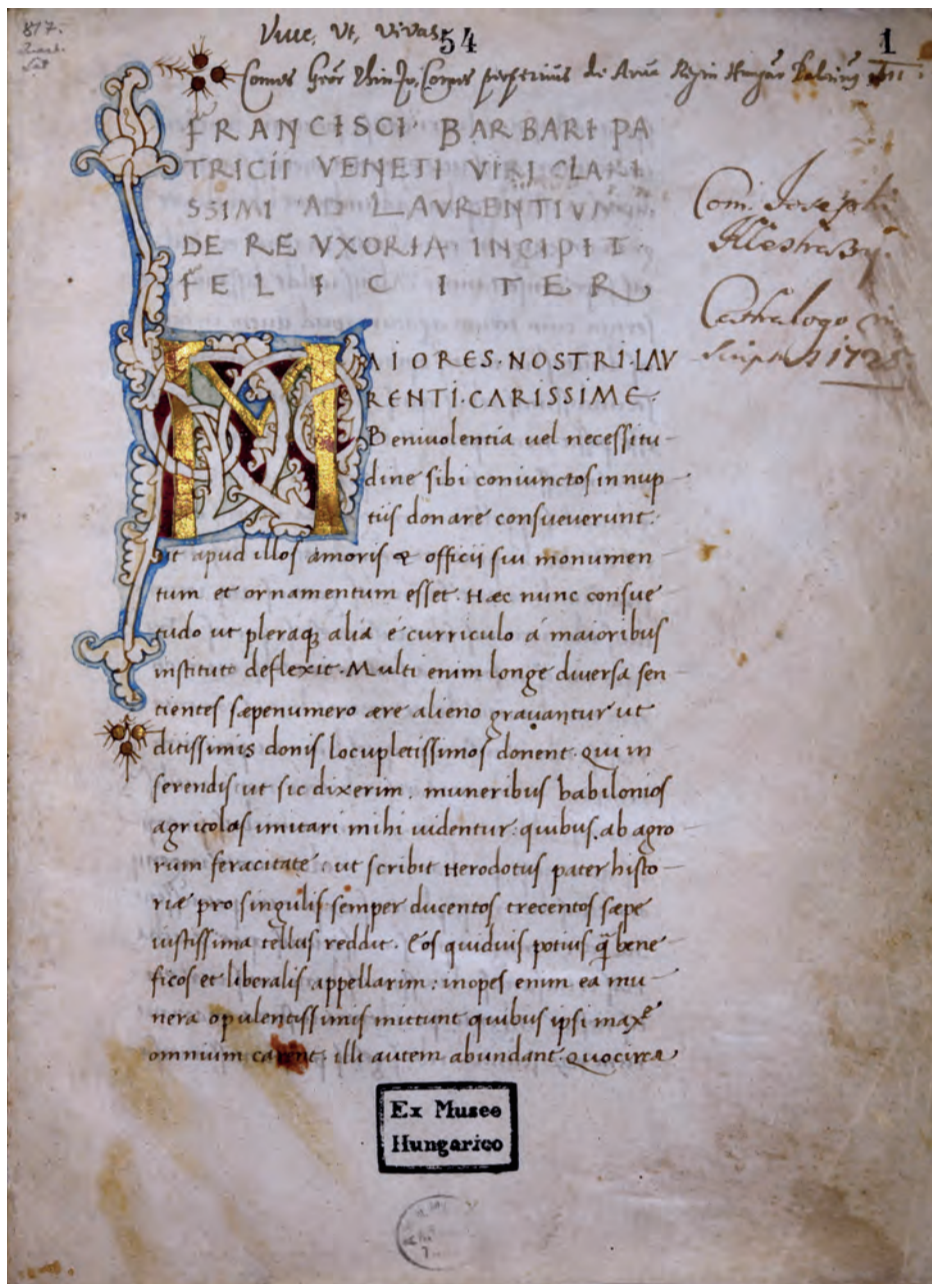 817.
Viue, Ut, vivas 54
1
Comes Geor
FRANCISCI BARBARI PA
TRICII VENETI VIRI CLARI
SSIMI AD LAVRENTIVM
DE RE VXORIA INCIPIT
FELICITER
MAIORES·NOSTRI·LAV
RENTI·CARISSIME·
Beniuolentia uel necessitu
dine sibi coniunctos in nup
tiis donare consueuerunt:
ut apud illos amoris & officii sui monumen
tum et ornamentum esset. Hæc nunc consue
tudo ut pleraq; alia é curriculo á maioribus
instituto deflexit. Multi enim longe diuersa sen
tientes sæpenumero ære alieno grauantur ut
ditissimis donis locupletissimos donent. qui in
serendis ut sic dixerim. muneribus babilonios
agricolas imitari mihi uidentur: quibus. ab agro
rum feracitate: ut scribit Herodotus pater histo
riæ pro singulis semper ducentos trecentos sæpe
iustissima tellus reddit. Eos quiduis potius q̃ bene
ficos et liberalis appellarim: inopes enim ea mu
nera opulentissimis mictunt quibus ipsi maxẽ
omnium carent: illi autem abundant. Quocirca
Com. Josephi
Illesházy.
Cathalogo in
scriptus 1725
Ex Museo
Hungarico